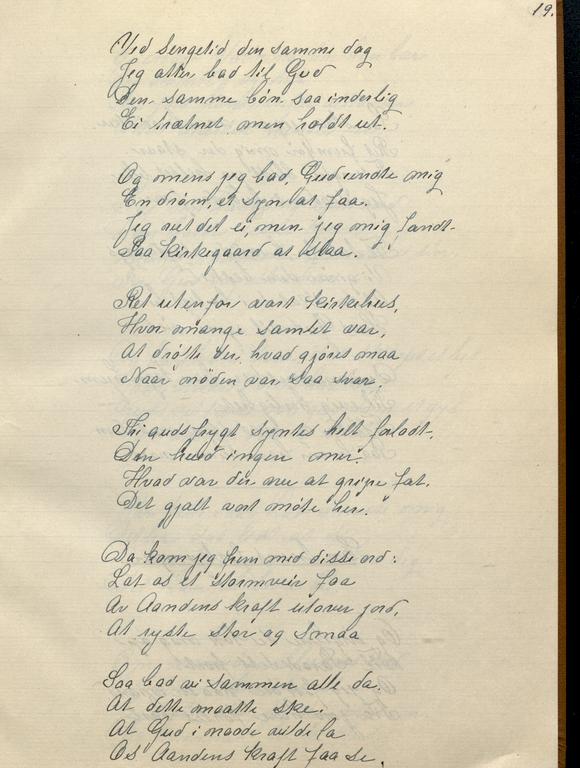 19.
Ved Sengetid den samme dag
Jeg atter bad til Gud
Den samme bön saa inderlig
Ei trætnet, men holdt ut.
Og mens jeg bad, Gud undte mig
En dröm, et syn at faa.
Jeg vet det ei, men jeg mig fandt
Paa Kirkegaard at staa.
Ret utenfor vort Kirkehus,
Hvor mange samlet var,
At dröfte der, hvad gjöres maa
Naar nöden var saa svar.
Thi gudsfrygt syntes helt forladt,
Den hused ingen mer.
Hvad var der nu at gripe fat.
Det gjalt vort möte her.
Da kom jeg frem med disse ord:
Lat os et Stormveir faa
Av Aandens Kraft utover jord,
At ryste stor og smaa
Saa bad vi sammen alle da.
At dette maatte ske.
At Gud i naade vilde la
Os Aandens Kraft faa se.